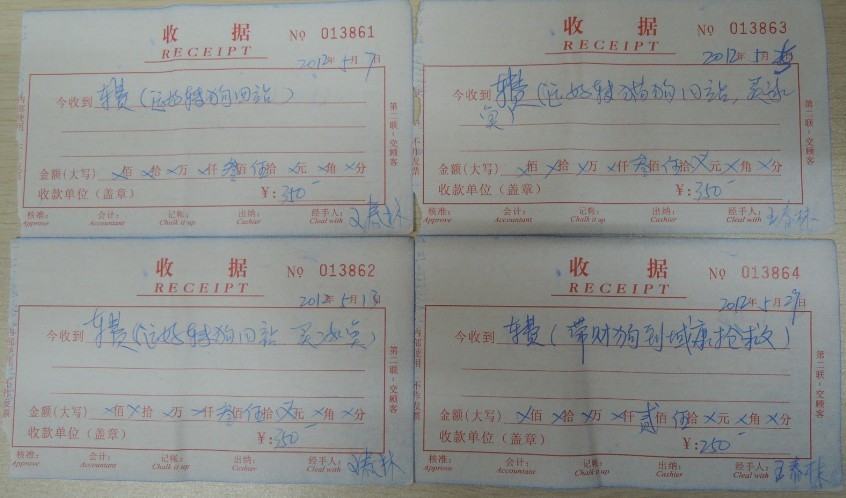 收据
RECEIPT
№ 013861
2012年5月7日
今收到 车费(运好特狗回站)
金额(大写) ×佰×拾×万×仟叁佰伍拾×元×角×分
收款单位(盖章) ¥:350-
核准: 会计: 记帐: 出纳: 经手人:
Approve Accountant Chalk it up Cashier Cleal with
第二联·交顾客
收据
RECEIPT
№ 013863
2012年5月
今收到 车费(运好特猫狗回站,买
金额(大写) ×佰×拾×万×仟叁佰伍拾×元×角×分
收款单位(盖章) ¥:350-
核准: 会计: 记帐: 出纳: 经手人: 王春林
Approve Accountant Chalk it up Cashier Cleal with
第二联·交顾客
收据
RECEIPT
№ 013862
2012年5月13日
今收到 车费(运好特狗回站 买
金额(大写) ×佰×拾×万×仟叁佰伍拾×元×角×分
收款单位(盖章) ¥:350-
核准: 会计: 记帐: 出纳: 经手人:
Approve Accountant Chalk it up Cashier Cleal with
第二联·交顾客
收据
RECEIPT
№ 013864
2012年5月29日
今收到 车费(带财狗到城康抢救)
金额(大写) ×佰×拾×万×仟贰佰伍拾×元×角×分
收款单位(盖章) ¥:250-
核准: 会计: 记帐: 出纳: 经手人: 王春林
Approve Accountant Chalk it up Cashier Cleal with
第二联·交顾客